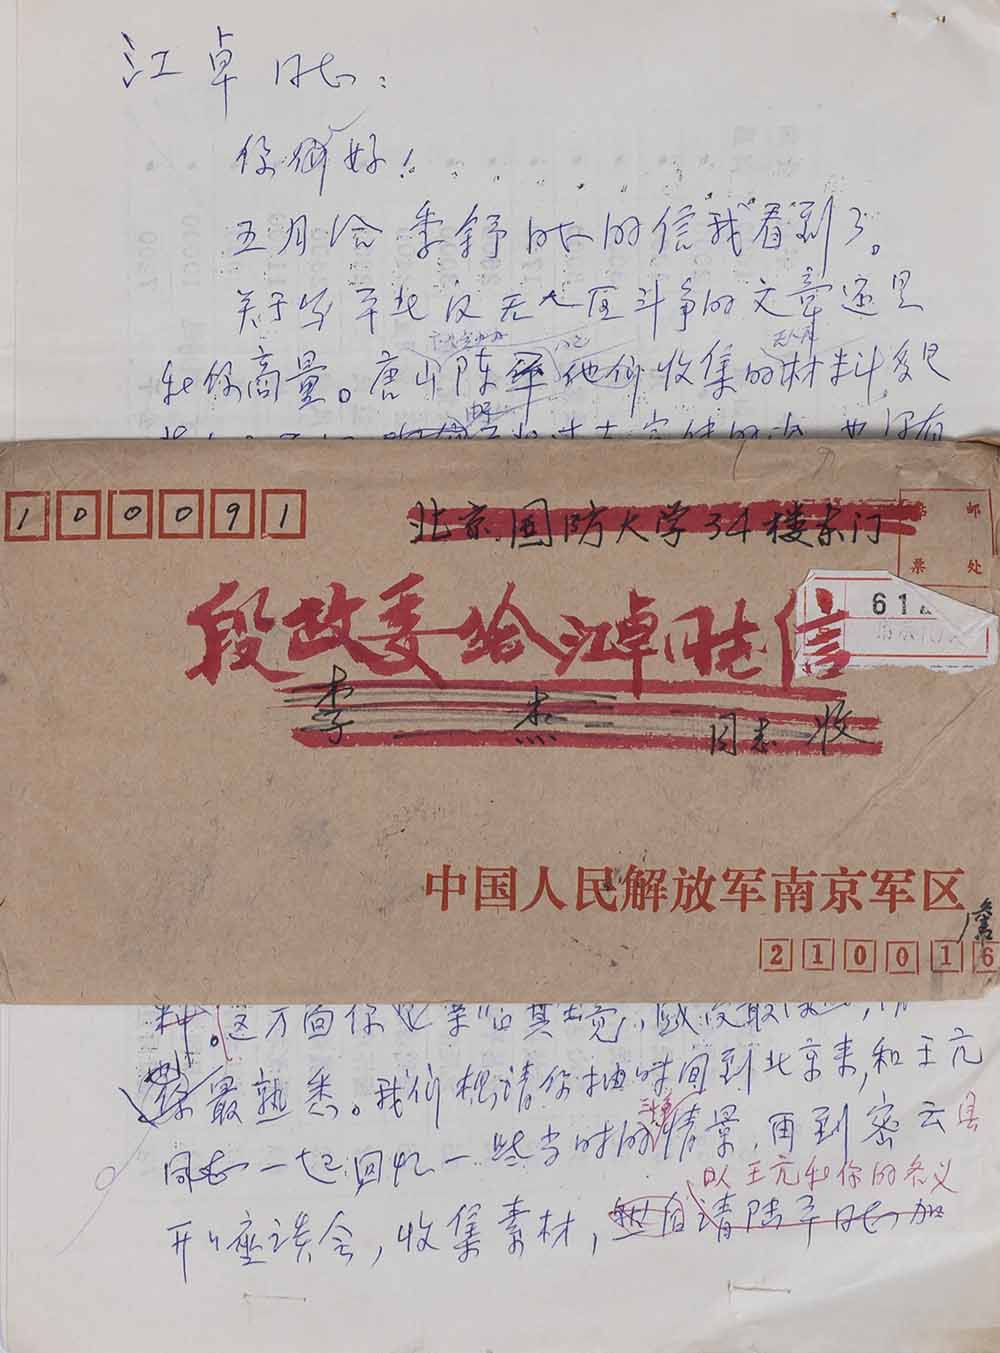 江卓同志：
你们好！
五月给季舒同志的信我看到了。
关于写平北反无人区斗争的文章还是
和你商量。唐山陈平他们收集的材料多是
无人区
100091
北京国防大学34楼东门
邮
票 处
61
段政委给江卓同志信
李 杰 同志 收
中国人民解放军南京军区
詹
210016
料。这方面你也亲临其境，感受最深，
你最熟悉。我们想请你抽时间到北京来，和王亢
同志一起回忆一些当时的情景，再到密云县
以王亢和你的名义
开个座谈会，收集素材，请陆平同志加